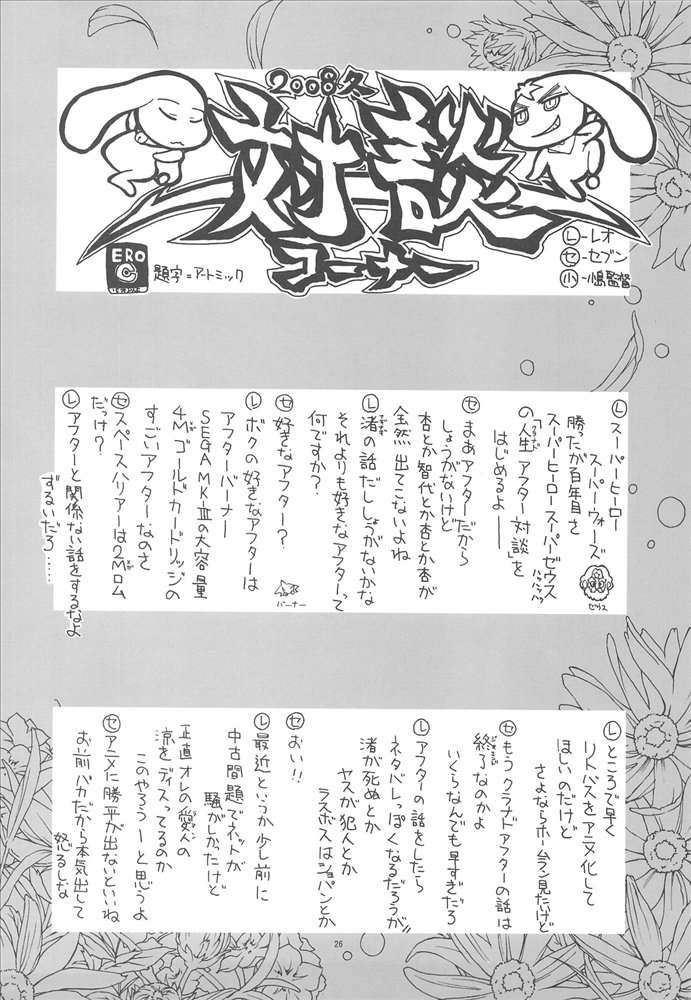 2008冬
対談
コーナー
ERO
C
題字=アートミック
Ⓛ-レオ
セ-セブン
小-小嶋監督
Ⓛスーパーヒーロー
スーパーウォーズ
勝ったが百年目さ
スーパーヒーロースーパーゼウス
ハッハッハッ
ゼウス
の人生アフター対談」を
クラナド
はじめるよ――
セ まあアフターだから
しょうがないけど
杏とか智代とか杏とか杏が
全然出てこないよね
Ⓛ渚の話だししょうがないかな
それよりも好きなアフターって
何ですか?
セ 好きなアフター?
バーナー
Ⓛボクの好きなアフターは
アフターバーナー
SEGA MKⅢの大容量
4Mゴールドカードリッジの
すごいアフターなのさ
セ スペースハリアーは2Mロム
だっけ?
Ⓛアフターと関係ない話をするなよ
ずるいだろ……
Ⓛところで早く
リトバスをアニメ化して
ほしいのだけど
さよならホームラン見たけど
セ もうクラナドアフターの話は
終了なのかよ
いくらなんでも早すぎだろ
Ⓛアフターの話をしたら
ネタバレっぽくなるだろうが!!
渚が死ぬとか
ヤスが犯人とか
ラスボスはショパンとか
セ おい!!
Ⓛ最近というか少し前に
中古問題でネットが
騒がしかたけど
正直オレの愛人の
涼をディスってるのか
このやろうーと思うよ
セ アニメに勝平が出ないといいね
お前バカだから本気出して
怒るしな
26